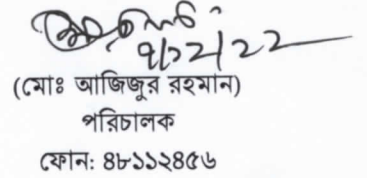 ৭/১২/২২
(মোঃ আজিজুর রহমান)
পরিচালক
ফোন: ৪৮১১২৪৫৬